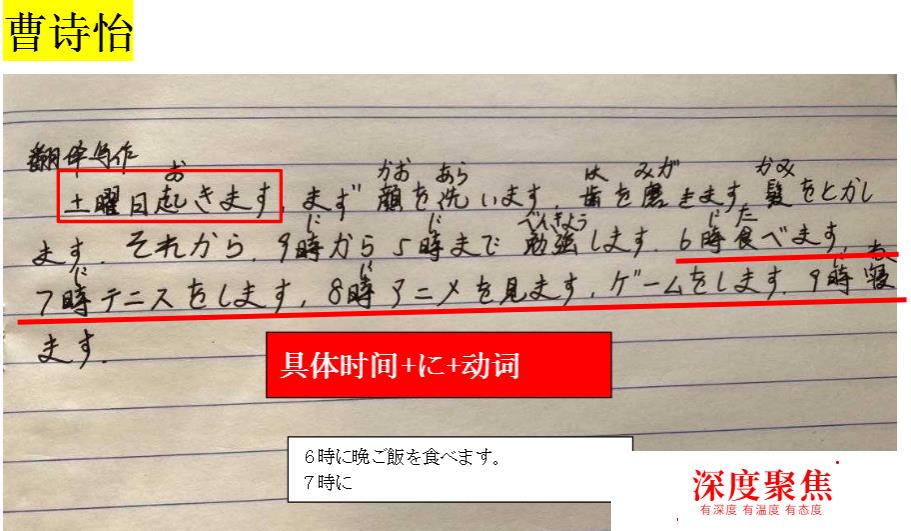 曹诗怡
翻译写作
お かお あら は みが かみ
土曜日起きます、まず顔を洗います、歯を磨きます、髪をとかし
じ じ べんきょう じ た
ます、それから、9時から5時まで勉強します、6時食べます、
じ じ じ ね
7時テニスをします、8時アニメを見ます、ゲームをします、9時寝
ます、
具体时间+に+动词
6時に晩ご飯を食べます。
7時に
深度聚焦
有深度 有温度 有态度